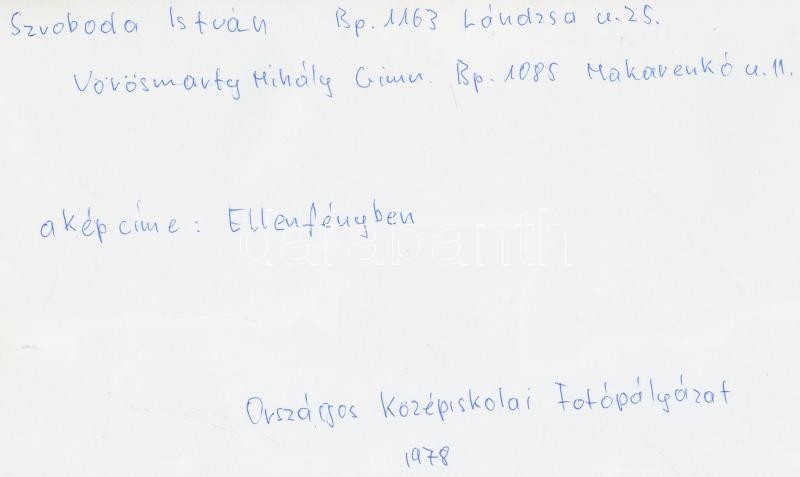 Szvoboda István Bp. 1163 Lándzsa u. 25.
Vörösmarty Mihály Gimn. Bp. 1085 Makarenkó u. 11.
a kép címe: Ellenfényben
darabanth
Országos Középiskolai Fotópályázat
1978